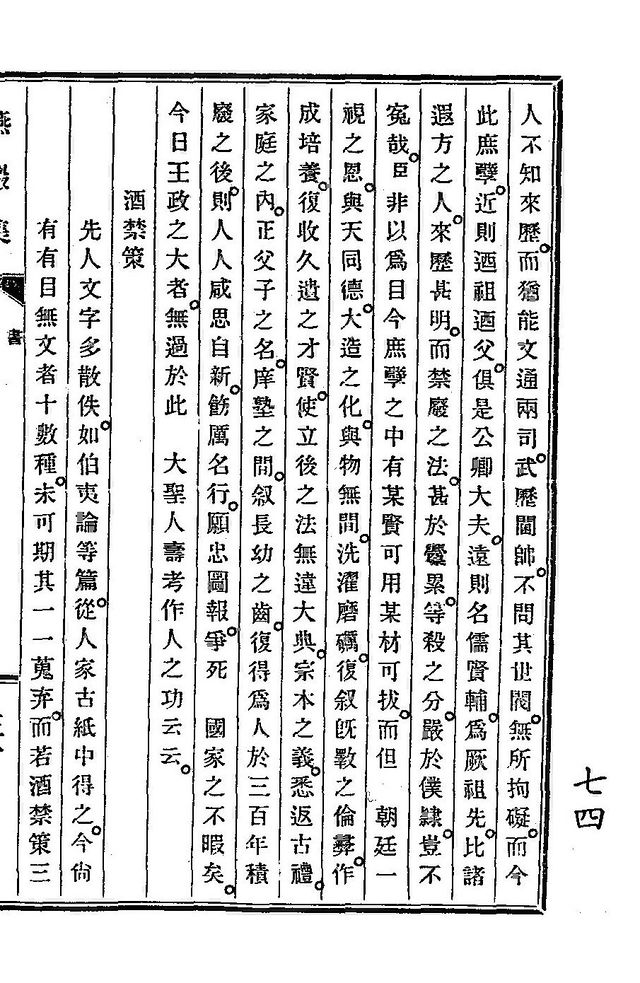 人不知來歷。而猶能文通兩司。武歷閫帥。不問其世閥。無所拘礙。而今
此庶孼。近則迺祖迺父。俱是公卿大夫。遠則名儒賢輔。爲厥祖先。比諸
遐方之人。來歷甚明。而禁廢之法。甚於釁累。等殺之分。嚴於僕隷。豈不
寃哉。臣非以爲目今庶孼之中有某賢可用某材可拔。而但 朝廷一
視之恩。與天同德。大造之化。與物無間。洗濯磨礪。復叙旣斁之倫彝。作
成培養。復收久遺之才賢。使立後之法無違大典。宗本之義。悉返古禮。
家庭之內。正父子之名。庠塾之間。叙長幼之齒。復得爲人於三百年積
廢之後。則人人咸思自新。飭厲名行。願忠圖報。爭死 國家之不暇矣。
今日王政之大者。無過於此 大聖人壽考作人之功云云。
酒禁策
先人文字多散佚。如伯夷論等篇。從人家古紙中得之。今尙
有有目無文者十數種。未可期其一一蒐弆。而若酒禁策三
燕巖集
書
七四